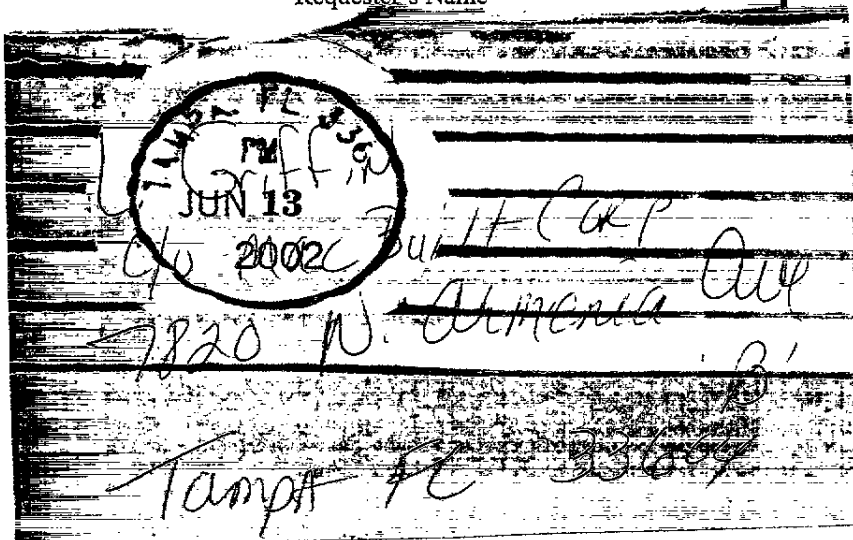 Requester's Name
TAMPA FL 336
PM
JUN 13
2002
Griffin
c/o Built Corp
7820 N. Armenia Ave
'B'
Tampa FL 33604